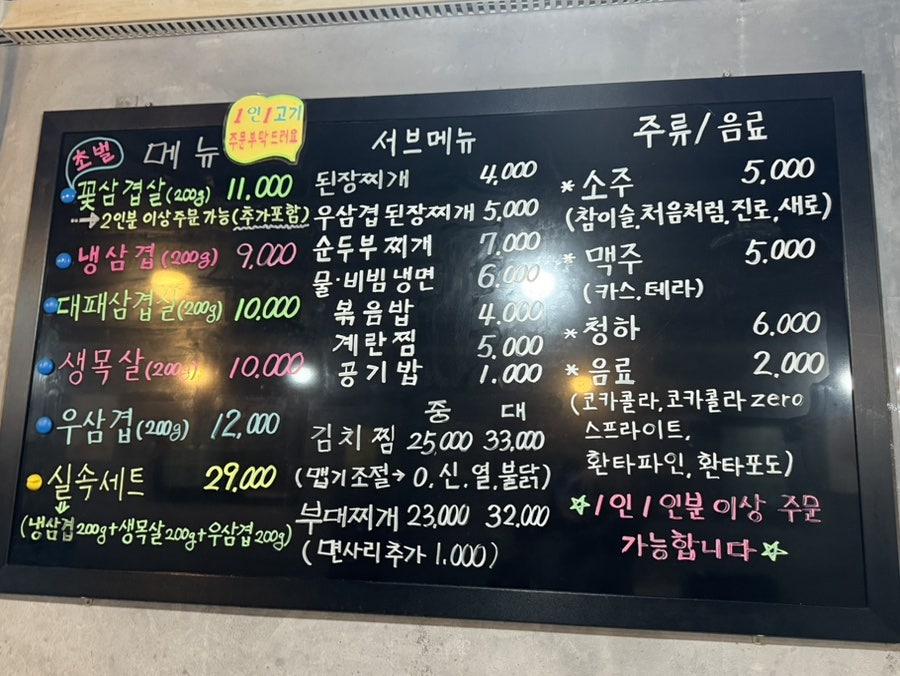 1인1고기
주문부탁드려요
초벌
메뉴
꽃삼겹살(200g) 11,000
→2인분 이상주문 가능(추가포함)
냉삼겹(200g) 9,000
대패삼겹살(200g) 10,000
생목살(200g) 10,000
우삼겹(200g) 12,000
실속세트 29,000
(냉삼겹200g+생목살200g+우삼겹200g)
서브메뉴
된장찌개 4,000
우삼겹 된장찌개 5,000
순두부찌개 7,000
물·비빔 냉면 6,000
볶음밥 4,000
계란찜 5,000
공기밥 1,000
중 대
김치찜 25,000 33,000
(맵기조절→ 0, 신, 열, 불닭)
부대찌개 23,000 32,000
(면사리추가 1,000)
주류/음료
*소주 5,000
(참이슬,처음처럼,진로,새로)
*맥주 5,000
(카스,테라)
*청하 6,000
*음료 2,000
(코카콜라,코카콜라zero
스프라이트,
환타파인, 환타포도)
☆1인 1인분 이상 주문
가능합니다☆